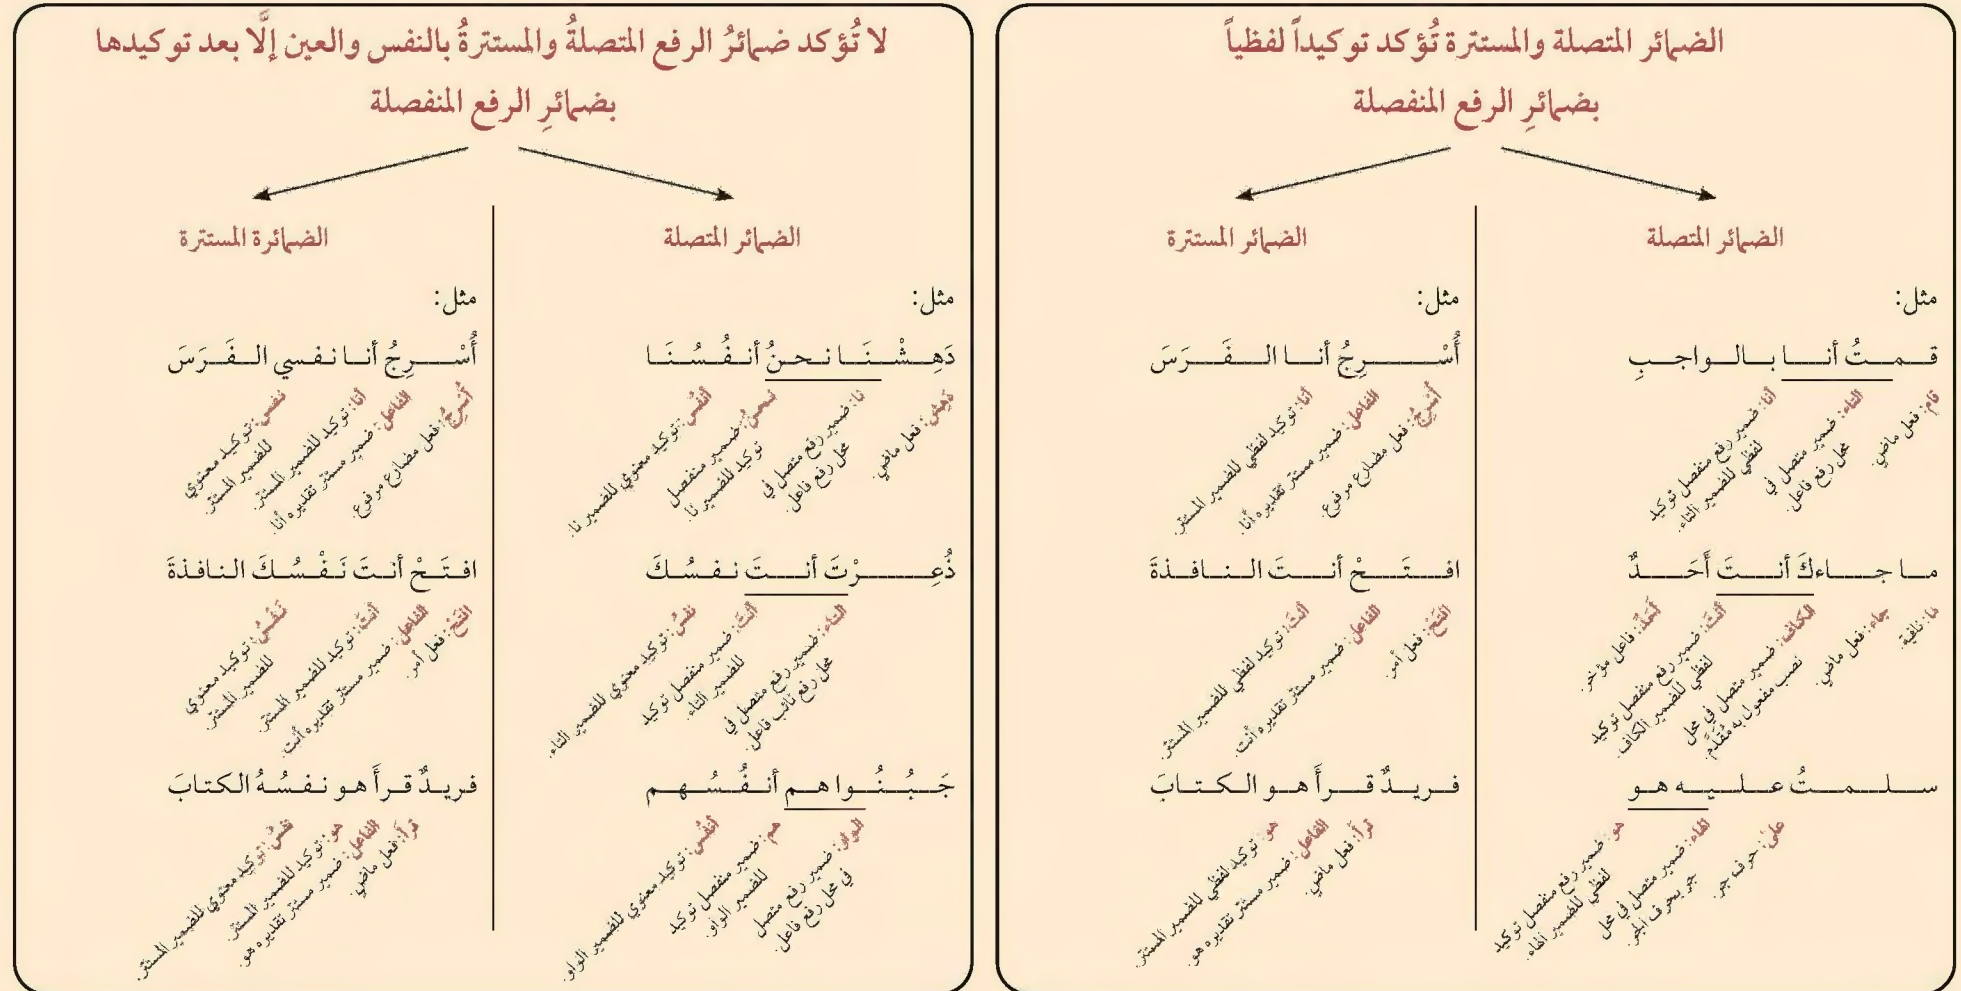 الضمائر المتصلة والمستترة تُؤكد توكيداً لفظياً
بضمائرِ الرفع المنفصلة
الضمائر المتصلة
مثل:
قمتُ أنا بالواجبِ
قام: فعل ماضٍ.
التاء: ضمير متصل في
محل رفع فاعل.
أنا: ضمير رفع منفصل توكيد
لفظي للضمير التاء.
ما جاءكَ أنتَ أَحَدٌ
ما: نافية.
جاء: فعل ماضٍ.
الكاف: ضمير متصل في محل
نصب مفعول به مُقَدَّم.
أنتَ: ضمير رفع منفصل توكيد
لفظي للضمير الكاف.
أَحَدٌ: فاعل مؤخر.
سلمتُ عليه هو
على: حرف جر.
الهاء: ضمير متصل في محل
جر بحرف الجر.
هو: ضمير رفع منفصل توكيد
لفظي للضمير الهاء.
الضمائر المستترة
مثل:
أُسْرِجُ أنا الفَرَسَ
أُسْرِجُ: فعل مضارع مرفوع.
الفاعل: ضمير مستتر تقديره أنا.
أنا: توكيد لفظي للضمير المستتر.
افتَحْ أنتَ النافذةَ
افتَحْ: فعل أمر.
الفاعل: ضمير مستتر تقديره أنت.
أنتَ: توكيد لفظي للضمير المستتر.
فريدٌ قرأَ هو الكتابَ
قرأَ: فعل ماضٍ.
الفاعل: ضمير مستتر تقديره هو.
هو: توكيد لفظي للضمير المستتر.
لا تُؤكد ضمائرُ الرفع المتصلةُ والمستترةُ بالنفس والعين إلَّا بعد توكيدها
بضمائرِ الرفع المنفصلة
الضمائر المتصلة
مثل:
دَهِشْنَا نحنُ أنفُسُنَا
دَهِشَ: فعل ماضٍ.
نا: ضمير رفع متصل في
محل رفع فاعل.
نحنُ: ضمير منفصل
توكيد للضمير نا.
أنفُس: توكيد معنوي للضمير نا.
ذُعِرْتَ أنتَ نفسُكَ
التاء: ضمير رفع متصل في
محل رفع نائب فاعل.
أنتَ: ضمير منفصل توكيد
للضمير التاء.
نفسُ: توكيد معنوي للضمير التاء.
جَبُنُوا هم أنفُسُهم
الواو: ضمير رفع متصل
في محل رفع فاعل.
هم: ضمير منفصل توكيد
للضمير الواو.
أنفُس: توكيد معنوي للضمير الواو.
الضمائرة المستترة
مثل:
أُسْرِجُ أنا نفسي الفَرَسَ
أُسْرِجُ: فعل مضارع مرفوع.
الفاعل: ضمير مستتر تقديره أنا.
أنا: توكيد للضمير المستتر.
نفسي: توكيد معنوي
للضمير المستتر.
افتَحْ أنتَ نَفْسُكَ النافذةَ
افتَحْ: فعل أمر.
الفاعل: ضمير مستتر تقديره أنت.
أنتَ: توكيد للضمير المستتر.
نَفْسُ: توكيد معنوي
للضمير المستتر.
فريدٌ قرأَ هو نفسُهُ الكتابَ
قرأَ: فعل ماضٍ.
الفاعل: ضمير مستتر تقديره هو.
هو: توكيد للضمير المستتر.
نفسُ: توكيد معنوي للضمير المستتر.